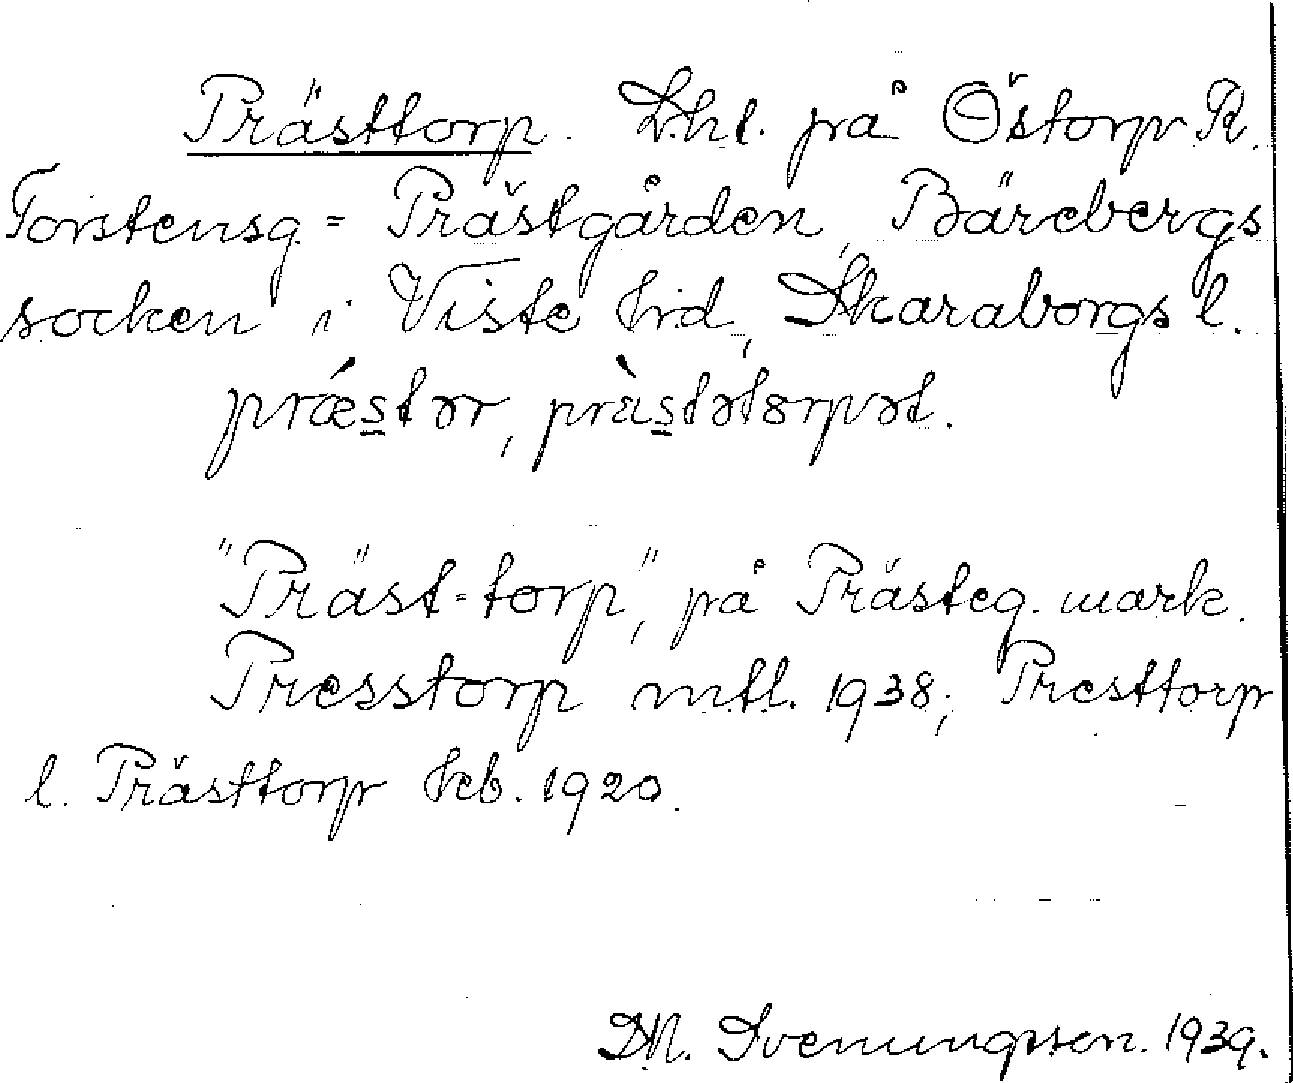 Prästtorp. Lht. på Östorp R.
Torstensg. = Prästgården, Bärebergs
socken i Viste hrd, Skaraborgs l.
prǽstər, prὰstətorpət.
"Präst-torp", på Prästeg. mark.
Presstorp mtl. 1938; Presttorp
l. Prästtorp kb. 1920.
Svenungsson. 1939.